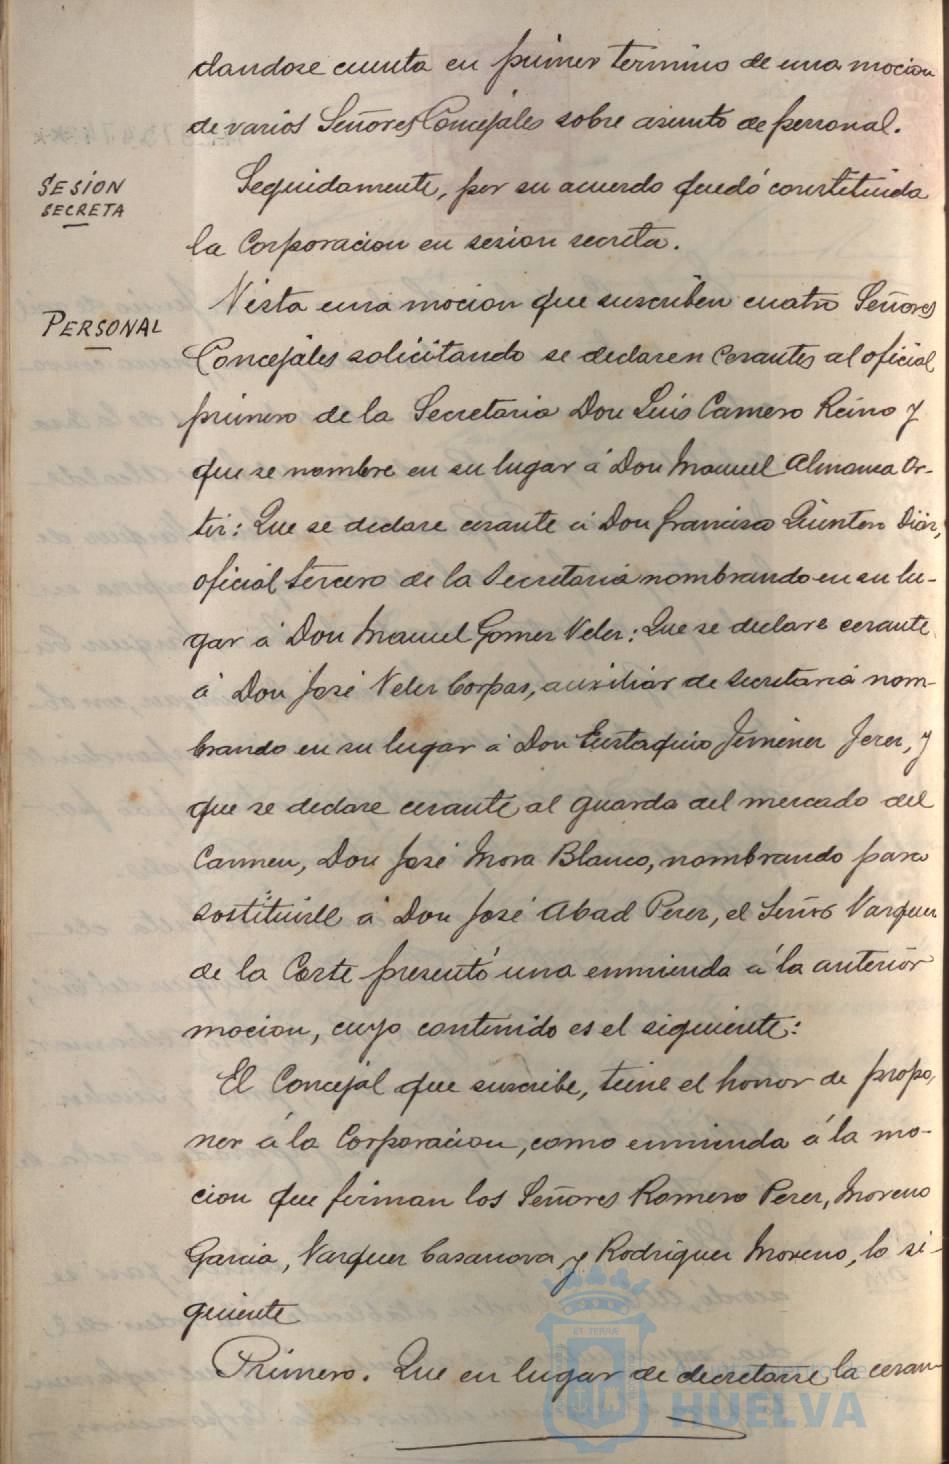 dandose cuenta en primer termino de una mocion
de varios Señores Concejales sobre asunto de personal.
SESION
SECRETA
Seguidamente, por su acuerdo quedó constituida
la Corporacion en sesion secreta.
PERSONAL
Vista una mocion que suscriben cuatro Señores
Concejales solicitando se declaren cesantes al oficial
primero de la Secretaria Don Luis Camero Reino y
que se nombre en su lugar á Don Manuel Almansa Or-
tiz: Que se declare cesante á Don Francisco Quintero Diaz,
oficial tercero de la Secretaria nombrando en su lu-
gar á Don Manuel Gomez Velez: Que se declare cesante
á Don José Velez Corpas, auxiliar de Secretaria nom-
brando en su lugar á Don Eustaquio Jimenez Jerez, y
que se declare cesante al guarda del mercado del
Carmen, Don José Mora Blanco, nombrando para
sostituirle á Don José Abad Perez, el Señor Vazquez
de la Corte presentó una enmienda á la anterior
mocion, cuyo contenido es el siguiente:
El Concejal que suscribe, tiene el honor de propo-
ner á la Corporacion, como enmienda á la mo-
cion que firman los Señores Romero Perez, Moreno
Garcia, Vazquez Casanova y Rodriguez Moreno, lo si-
guiente
Primero. Que en lugar de decretarse la cesan-
Ayuntamiento de
HUELVA